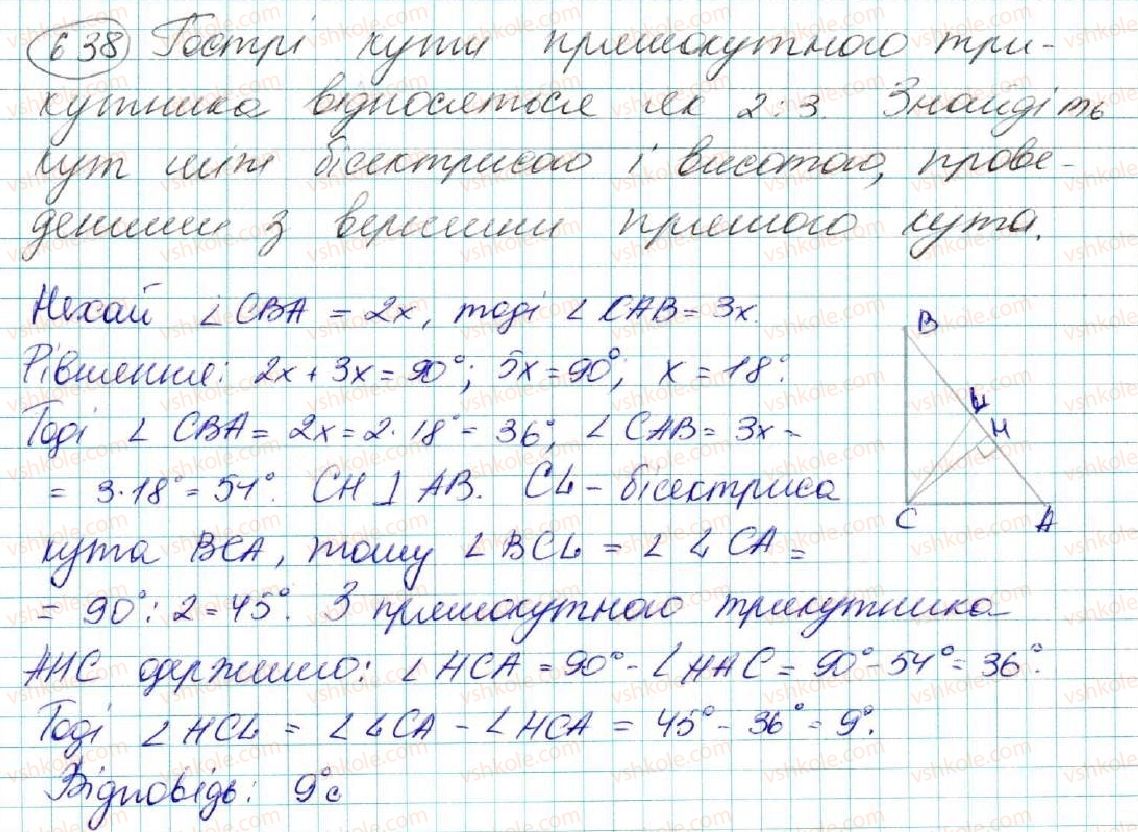 638 Гострі кути прямокутного три-
кутника відносяться як 2:3. Знайдіть
кут між бісектрисою і висотою, прове-
деними з вершини прямого кута.
Нехай ∠CBA = 2x, тоді ∠CAB = 3x.
Рівняння: 2x + 3x = 90°; 5x = 90°; x = 18°.
Тоді ∠CBA = 2x = 2·18° = 36°, ∠CAB = 3x =
= 3·18° = 54°. CH ⊥ AB. CL - бісектриса
кута BCA, тому ∠BCL = ∠LCA =
= 90° : 2 = 45°. З прямокутного трикутника
AHC одержимо: ∠HCA = 90° - ∠HAC = 90° - 54° = 36°.
Тоді ∠HCL = ∠LCA - ∠HCA = 45° - 36° = 9°.
Відповідь: 9°.
B
L
H
C A
vshkole.com